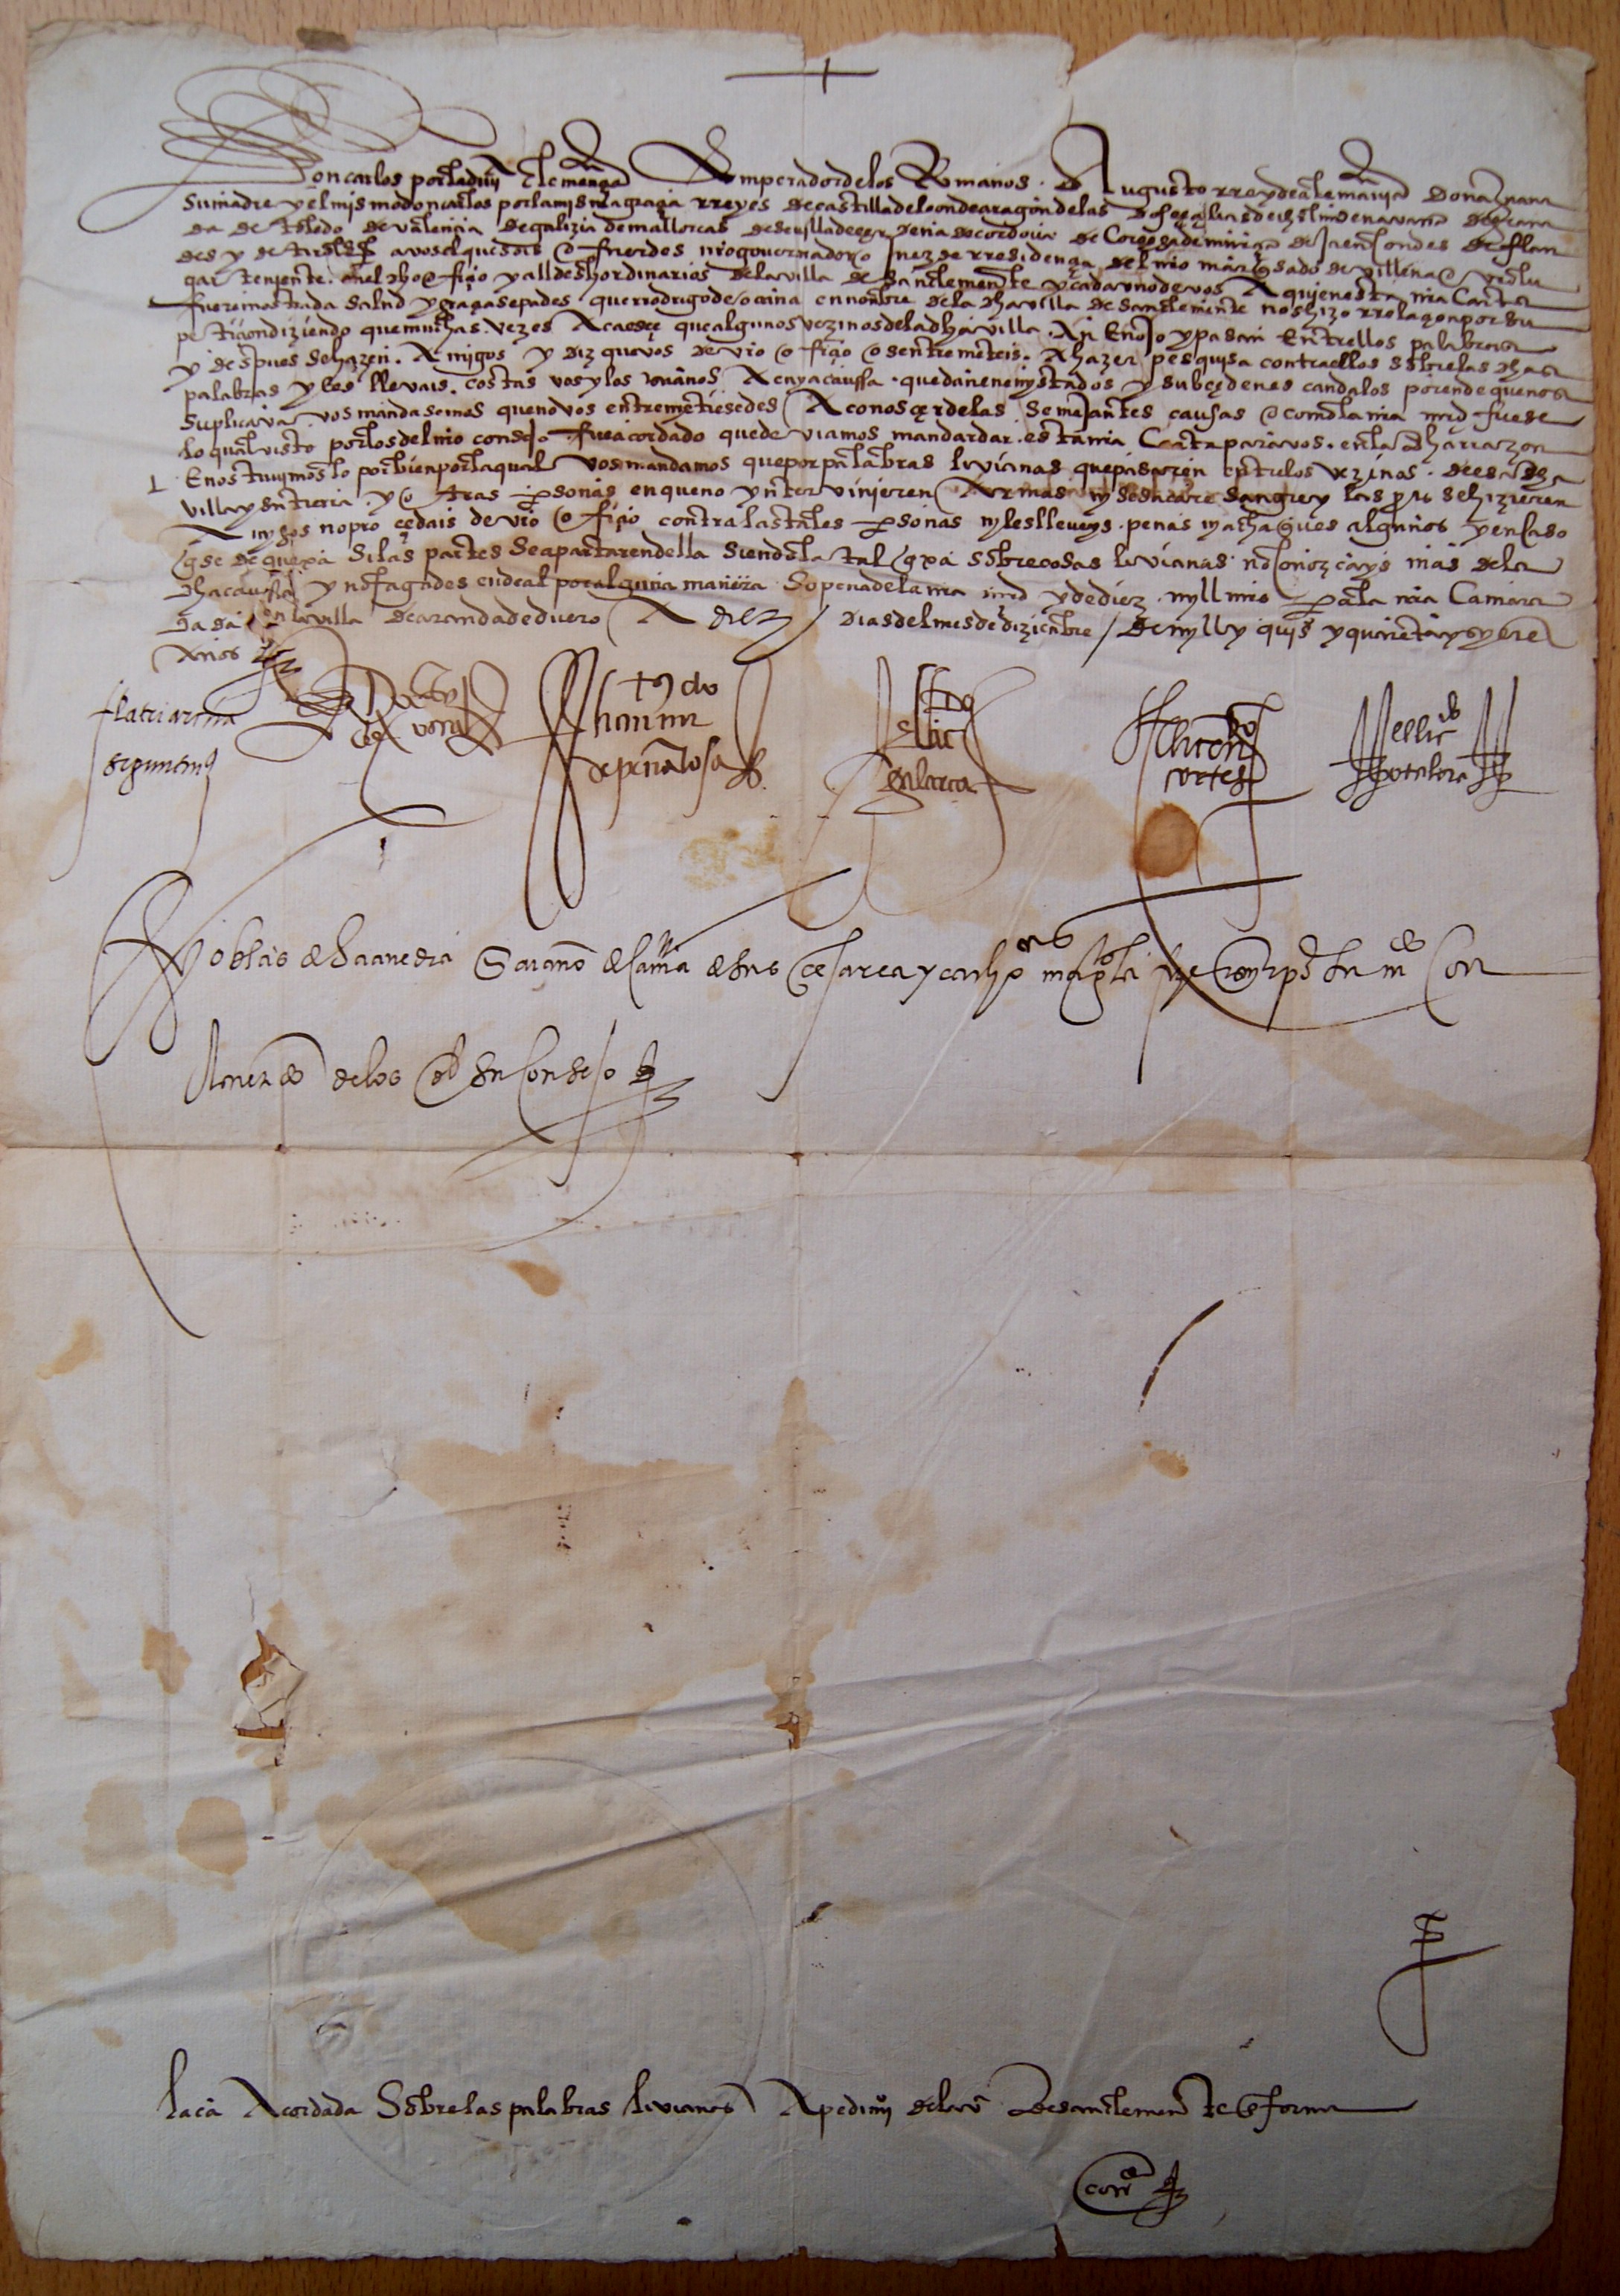 Don carlos por la diuia clemençia Emperador de los Romanos Augusto rrey de alemania Doña Juana
su madre y el mismo don carlos por la misma graçia rreyes de castilla de leon de aragon de las dos seçilias de iherusalem de nauarra de grana
da de toledo de valençia de galizia de mallorcas de seuilla de çerdeña de cordoua de Corçega de murçia de Jaen Condes de flan
des y de tirol a vos el que sois o fuerdes nro gouernador o Juez de rresidençia del nro marqsado de villena o vro lu
gar teniente en el dho ofiçio y alldes hordinarios de la villa de sanclemente y cada vno de vos A quien esta nra Carta
fuere mostrada salud y graçia sepades que rrodrigo de ocaña en nonbre de la dha villa de sanclemente nos hizo rrelaçion por su
petiçion diziendo que muchas vezes Acaesçe que algunos vezinos de la dha villa An Enojo y pasan Entrellos palabras
y despues se hazen Amigos y diz que vos de vro ofiçio os entremeteis A hazer pesquisa contra ellos sobre las dhas
palabras y les lleuais costas vos y los escriuanos A cuya caussa quedan enemystados y subçeden escandalos por ende que nos
suplicaua vos mandasemos que no vos entremetiesedes A conosçer de las Semejantes causas o como la nra md fuese
lo qual visto por los del nro consejo fue acordado que deuiamos mandar dar esta nra Carta para vos en la dha rrazon
E nos tuuymoslo por bien por la qual vos mandamos que por palabras liuianas que pasaren entre los vezinos desa dha
villa y su tierra y otras personas en que no ynteruinieren Armas ny se sacare sangre y las ptes se hizieren
Amygos no proçedais de vro ofiçio contra las tales personas ny les lleueys penas ny achaques algunos y en Caso
q se de quexa si las partes se apartaren della siendo la tal qxa sobre cosas liuianas no Conozcays mas de la
dha caussa y no fagades ende al por alguna manera So pena de la nra md y de diez myll mrs para la nra Camara
dada en la villa de aranda de duero A diez dias del mes de dizienbre de myll y quis y quarenta y syete
Años
patriarcha
seguntinus
Doctor
del corral
fernando
de peñalosa
El licdo
galarça
El licendo
cortes
El licdo
hotalora
Yo blas de saauedra escriuano de camara de sus çesarea y catholicas magestades la fize escreuir por su mdo con
Acuerdo de los del su consejo
la ca Acordada Sobre las palabras liuianas A pedimio de la va de sanclemente En forma
corre